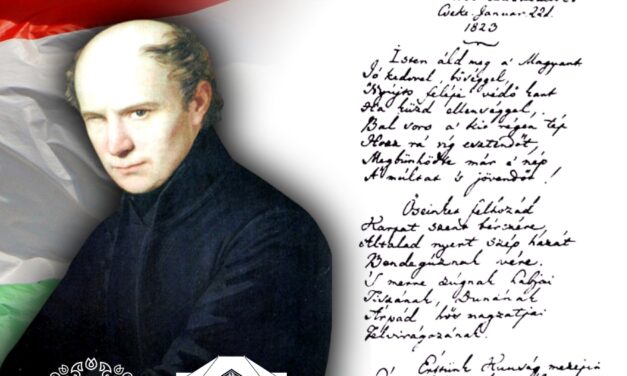 Cseke. Januar. 22d.
1823
Isten áld meg a' Magyart
Jó kedvvel, bőséggel,
Nyújts feléje védő kart
Ha küzd ellenséggel,
Bal sors a' kit régen tép
Hozz rá víg esztendőt,
Megbűnhődte már e' nép
A' múltat 's jövendőt!
Őseinket felhozád
Kárpát szent bérczére,
Általad nyert szép hazát
Bendegúznak vére.
'S merre zúgnak habjai
Tiszának, Dunának
Árpád hős magzatjai
Felvirágozának.
Értünk Kunság mezein